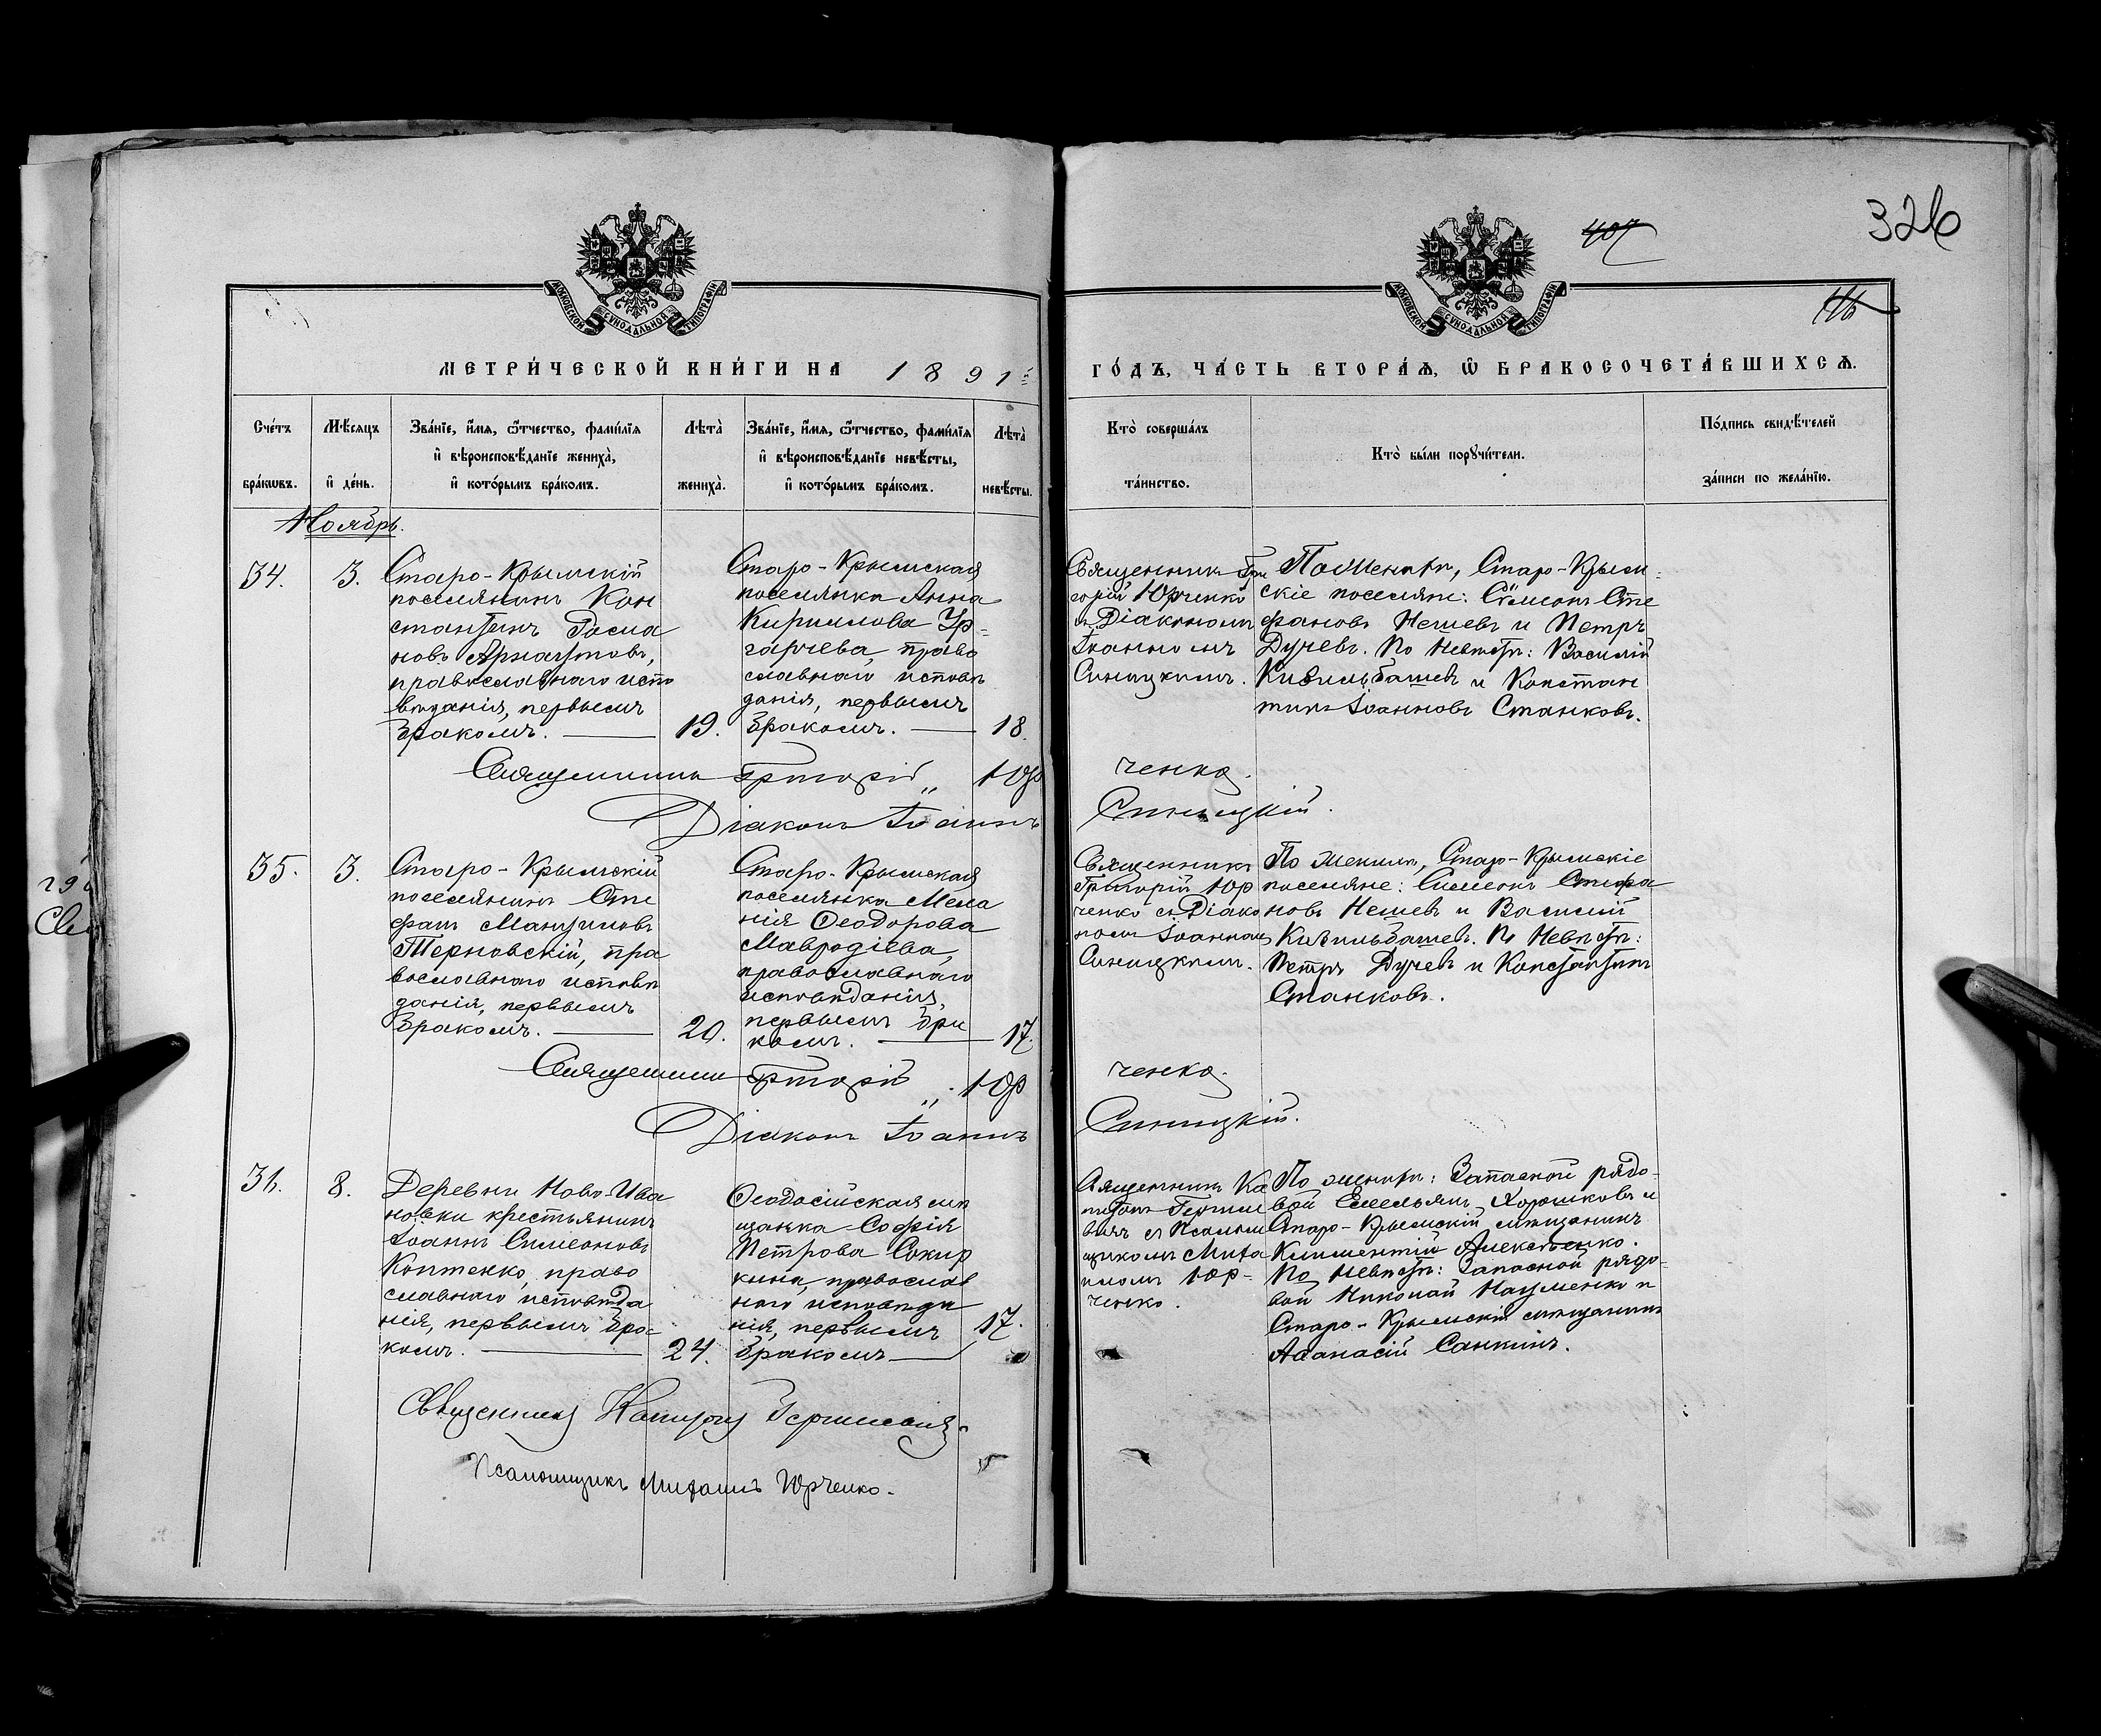 326
407
МОСКОВСКОЙ СѴНОДАЛЬНОЙ ТИПОГРАФІИ
МОСКОВСКОЙ СѴНОДАЛЬНОЙ ТИПОГРАФІИ
МЕТРИ́ЧЕСКОЙ КНИ́ГИ НА 1891й
ГО́ДЪ, ЧА́СТЬ ВТОРА́Ѧ, Ѡ҆ БРАКОСОЧЕТА́ВШИХСѦ.
Сче́тъ
бра́кѡвъ.
Мѣ́сяцъ
и҆ де́нь.
Зва́нїе, и҆́мя, ѻ҆́тчество, фами́лїя
и҆ вѣроисповѣ́данїе жениха̀,
и҆ кото́рымъ бра́комъ.
Лѣта̀
жениха̀.
Зва́нїе, и҆́мя, ѻ҆́тчество, фами́лїя
и҆ вѣроисповѣ́данїе невѣ́сты,
и҆ кото́рымъ бра́комъ.
Лѣта̀
невѣ́сты.
Кто̀ соверша́лъ
та́инство.
Кто̀ бы́ли порꙋчи́тели.
По́дпись свидѣ́телей
за́писи по жела́нїю.
Ноябрь.
34.
3.
Старо-Крымскій
поселянинъ Кон
стантинъ
новъ Арнаутовъ,
православнаго испо
вѣданія, первымъ
бракомъ.
19.
Старо-Крымская
поселянка Анна
Кириллова Ур-
гачева, право
славнаго исповѣ
данія, первымъ
бракомъ.
18.
Священникъ Гри
горій Юрченко
съ Діакономъ
Іоанномъ
Синицкимъ.
По женихѣ, Старо-Крым-
скіе поселяне: Сѵмеонъ Сте
фановъ Нешевъ и Петръ
Дучевъ. По невѣстѣ: Василій
Кизильбашевъ и Констан
тинъ Іоанновъ Станковъ.
Священникъ Григорій Юр
ченко.
Діаконъ Іоаннъ
Синицкій.
35.
3.
Старо-Крымскій
поселянинъ Сте
фанъ
Терновскій, пра
вославнаго исповѣ
данія, первымъ
бракомъ.
20.
Старо-Крымская
поселянка Мела
нія Ѳеодорова
Мавродіева,
православнаго
исповѣданія,
первымъ бра
комъ.
17.
Священникъ
Григорій Юр
ченко съ Діако
номъ Іоанномъ
Синицкимъ.
По женихѣ, Старо-Крымскіе
поселяне: Симеонъ Стефа
новъ Нешевъ и Василій
Кизильбашевъ. По невѣстѣ:
Петръ Дучевъ и Константинъ
Станковъ.
Священникъ Григорій Юр
ченко.
Діаконъ Іоаннъ
Синицкій.
36.
8.
Деревни Ново-Ива
новки крестьянинъ
Іоаннъ Симеоновъ
Коптенко, право
славнаго исповѣда
нія, первымъ бра-
комъ.
24.
Ѳеодосійская мѣ
щанка Софія
Петрова Сокир
кина, православ
наго исповѣда
нія, первымъ
бракомъ
17.
Священникъ Ка
питонъ
съ Псалом
щикомъ Миха
иломъ Юр-
ченко.
По женихѣ: Запасной рядо-
вой Емельянъ Хорошковъ и
Старо-Крымскій мѣщанинъ
Климентій Алексѣенко.
По невѣстѣ: Запасной рядо-
вой Николай Науменко и
Старо-Крымскій мѣщанинъ
Аѳанасій Санкинъ.
Священникъ Капитонъ
Псаломщикъ Михаилъ Юрченко.